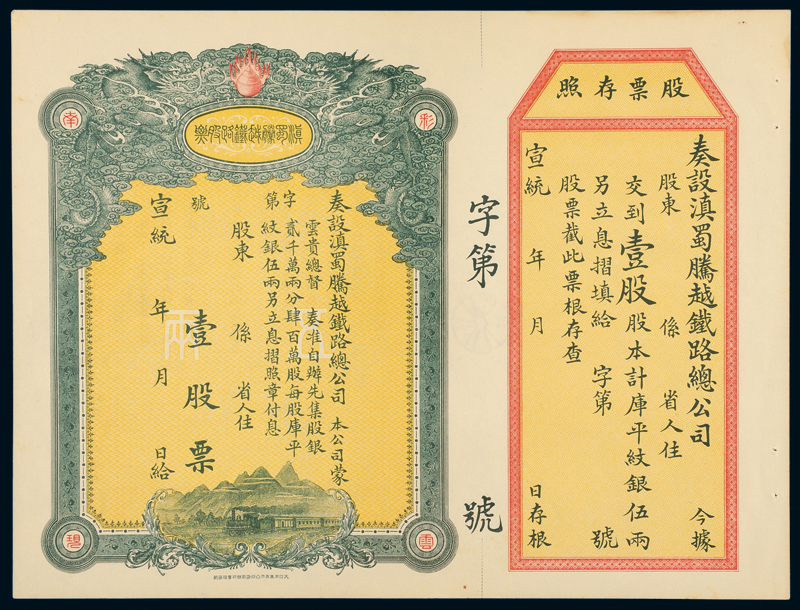 股票存照
奏設滇蜀騰越鐵路總公司 今據
股東 係 省人住
交到壹股股本計庫平紋銀伍兩
另立息摺填給 字第 號
股票截此票根存查
宣統 年 月 日存根
字第 號
滇蜀騰越鐵路股票
彩
南
雲
現
奏設滇蜀騰越鐵路總公司 本公司蒙
雲貴總督 奏准自辦先集股銀
貳千萬兩分肆百萬股每股庫平
紋銀伍兩另立息摺照章付息
股東 係 省人住
字第 號
壹股票
宣統 年 月 日給
伍兩